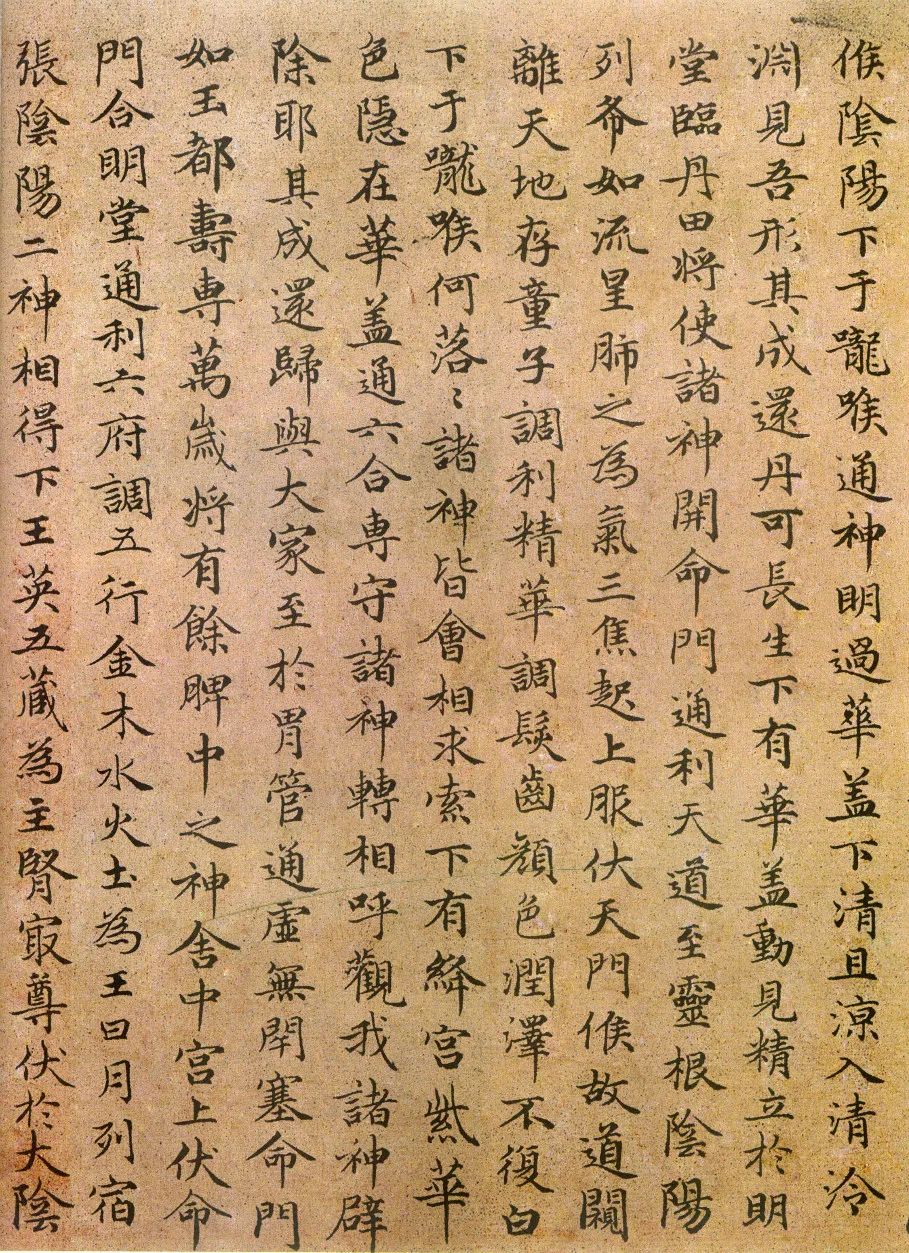 候陰陽下于嚨喉通神明過華盖下清且涼入清泠
淵見吾形其成還丹可長生下有華盖動見精立於明
堂臨丹田将使諸神開命門通利天道至靈根陰陽
列布如流星肺之為氣三焦起上服伏天門候故道闚
離天地存童子調利精華調髮齒顏色潤澤不復白
下于嚨喉何落〻諸神皆會相求索下有絳宫紫華
色隱在華盖通六合専守諸神轉相呼觀我諸神辟
除耶其成還歸與大家至於胃管通虛無閇塞命門
如玉都壽専萬歲将有餘脾中之神舍中宫上伏命
門合明堂通利六府調五行金木水火土為王日月列宿
張陰陽二神相得下玉英五蔵為主腎㝡尊伏於大陰